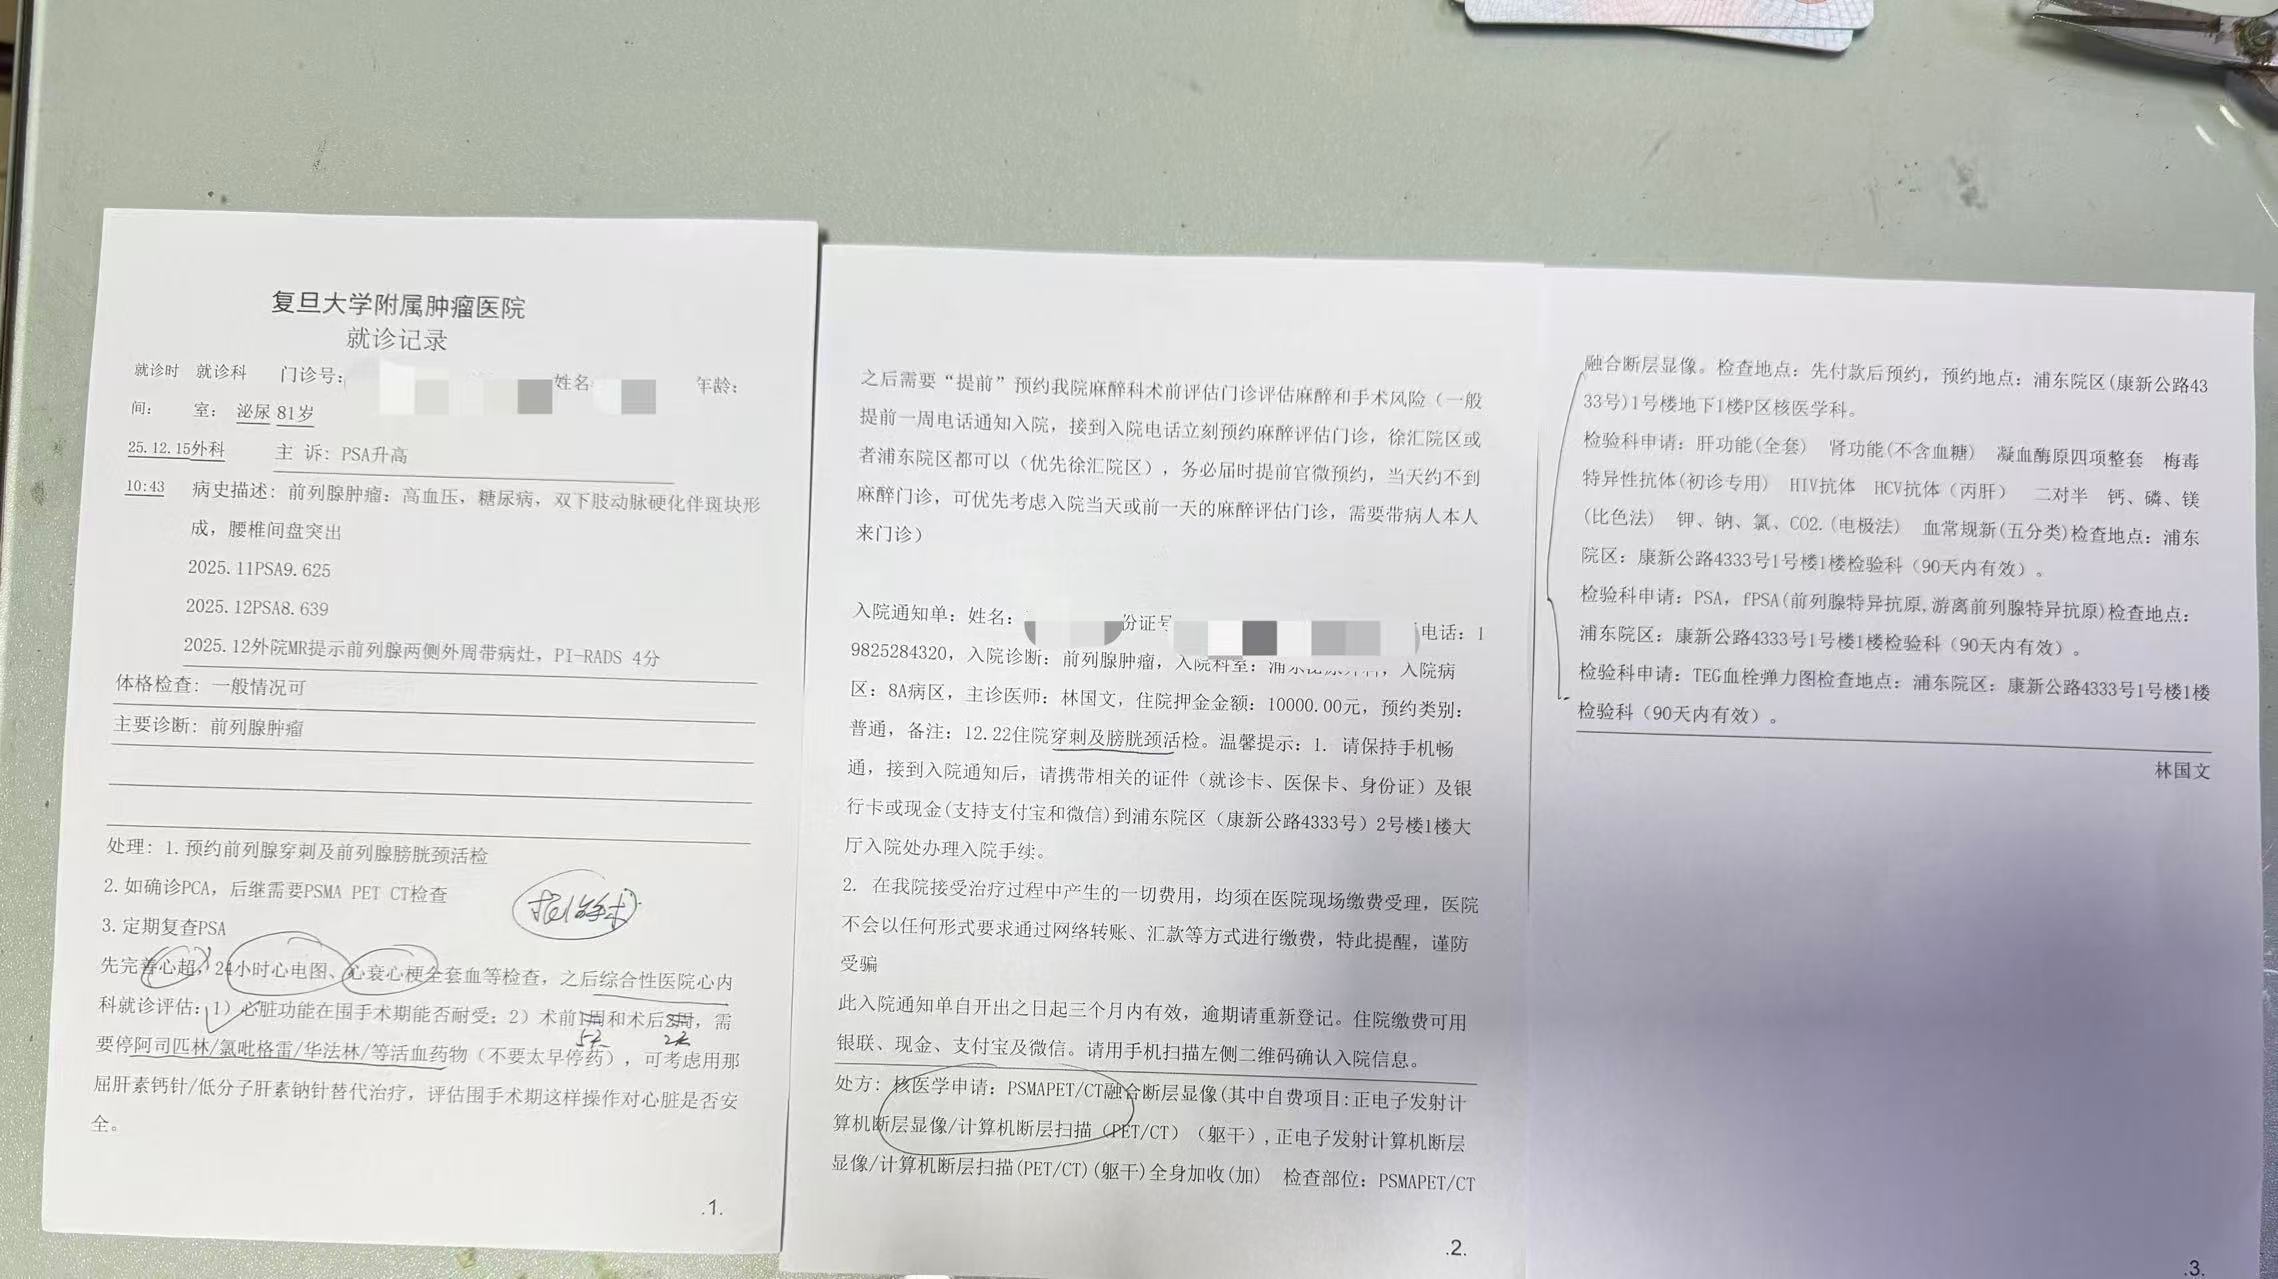 复旦大学附属肿瘤医院
就诊记录
就诊时 就诊科 门诊号: 姓名 年龄:
间: 室: 泌尿 81岁
25.12.15外科 主 诉: PSA升高
10:43 病史描述: 前列腺肿瘤: 高血压, 糖尿病, 双下肢动脉硬化伴斑块形
成, 腰椎间盘突出
2025.11PSA9.625
2025.12PSA8.639
2025.12外院MR提示前列腺两侧外周带病灶, PI-RADS 4分
体格检查: 一般情况可
主要诊断: 前列腺肿瘤
处理: 1.预约前列腺穿刺及前列腺膀胱颈活检
2.如确诊PCA, 后继需要PSMA PET CT检查
3.定期复查PSA
先完善心超, 24小时心电图、心衰心梗全套血等检查, 之后综合性医院心内
科就诊评估: 1) 心脏功能在围手术期能否耐受; 2) 术前1周和术后2周, 需
5天 2天
要停阿司匹林/氯吡格雷/华法林/等活血药物 (不要太早停药) , 可考虑用那
屈肝素钙针/低分子肝素钠针替代治疗, 评估围手术期这样操作对心脏是否安
全。
.1.
之后需要“提前”预约我院麻醉科术前评估门诊评估麻醉和手术风险 (一般
提前一周电话通知入院, 接到入院电话立刻预约麻醉评估门诊, 徐汇院区或
者浦东院区都可以 (优先徐汇院区) , 务必届时提前官微预约, 当天约不到
麻醉门诊, 可优先考虑入院当天或前一天的麻醉评估门诊, 需要带病人本人
来门诊)
入院通知单: 姓名: 份证号 电话: 1
9825284320, 入院诊断: 前列腺肿瘤, 入院科室: 浦东泌尿外科, 入院病
区: 8A病区, 主诊医师: 林国文, 住院押金金额: 10000.00元, 预约类别:
普通, 备注: 12.22住院穿刺及膀胱颈活检。温馨提示: 1. 请保持手机畅
通, 接到入院通知后, 请携带相关的证件 (就诊卡、医保卡、身份证) 及银
行卡或现金(支持支付宝和微信)到浦东院区 (康新公路4333号) 2号楼1楼大
厅入院处办理入院手续。
2. 在我院接受治疗过程中产生的一切费用, 均须在医院现场缴费受理, 医院
不会以任何形式要求通过网络转账、汇款等方式进行缴费, 特此提醒, 谨防
受骗
此入院通知单自开出之日起三个月内有效, 逾期请重新登记。住院缴费可用
银联、现金、支付宝及微信。请用手机扫描左侧二维码确认入院信息。
处方: 核医学申请: PSMAPET/CT融合断层显像(其中自费项目:正电子发射计
算机断层显像/计算机断层扫描 (PET/CT) (躯干) ,正电子发射计算机断层
显像/计算机断层扫描(PET/CT)(躯干)全身加收(加) 检查部位: PSMAPET/CT
.2.
融合断层显像。检查地点: 先付款后预约, 预约地点: 浦东院区(康新公路43
33号)1号楼地下1楼P区核医学科。
检验科申请: 肝功能(全套) 肾功能(不含血糖) 凝血酶原四项整套 梅毒
特异性抗体(初诊专用) HIV抗体 HCV抗体 (丙肝) 二对半 钙、磷、镁
(比色法) 钾、钠、氯、CO2.(电极法) 血常规新(五分类)检查地点: 浦东
院区: 康新公路4333号1号楼1楼检验科 (90天内有效) 。
检验科申请: PSA, fPSA(前列腺特异抗原,游离前列腺特异抗原)检查地点:
浦东院区: 康新公路4333号1号楼1楼检验科 (90天内有效) 。
检验科申请: TEG血栓弹力图检查地点: 浦东院区: 康新公路4333号1号楼1楼
检验科 (90天内有效) 。
林国文
.3.